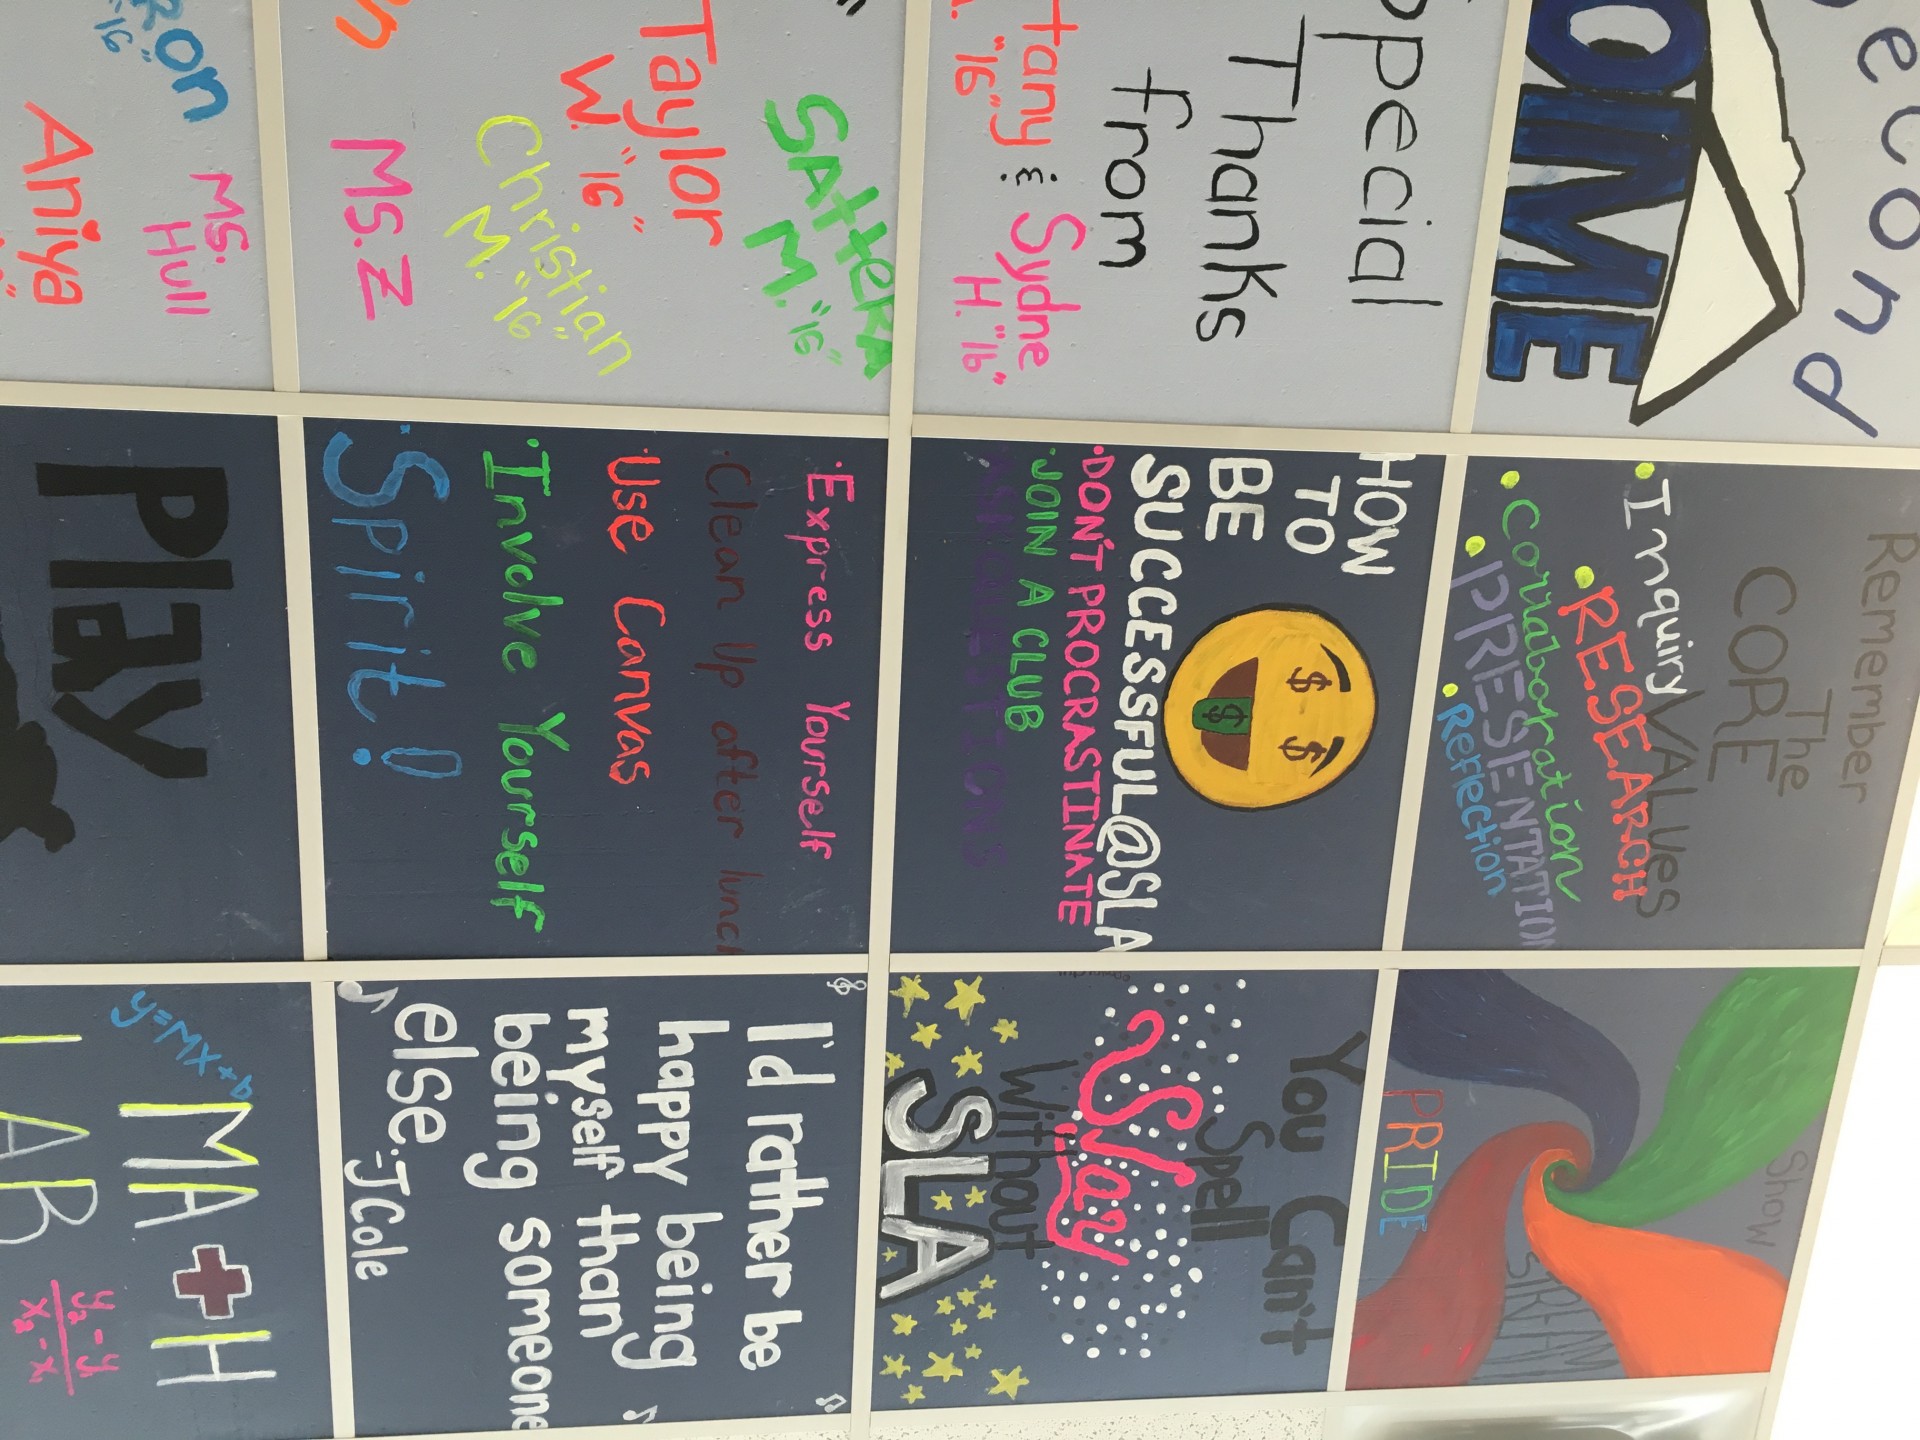 econd
OME
Remember
The
CORE
VALUES
Inquiry
RESEARCH
Corraboration
PRESENTATION
Reflection
Show
STREAM
PRIDE
pecial
Thanks
from
tany & Sydne
"16" H. "16"
HOW
TO
BE
SUCCESSFUL@SLA
·DON'T PROCRASTINATE
·JOIN A CLUB
·ASK QUESTIONS
You Can't
Spell
Slay
Without
SLA
Sattera
M. "16"
Taylor
W. "16"
Christian
M. "16"
Ms. Z
·Express Yourself
·Clean Up after lunch
·Use Canvas
·Involve Yourself
·Spirit!
I'd rather be
happy being
myself than
being someone
else -JCole
ron
"16"
Ms.
Hull
Aniya
Play
y=mx+b
MA+H
LAB
y₂-y
x₂-x